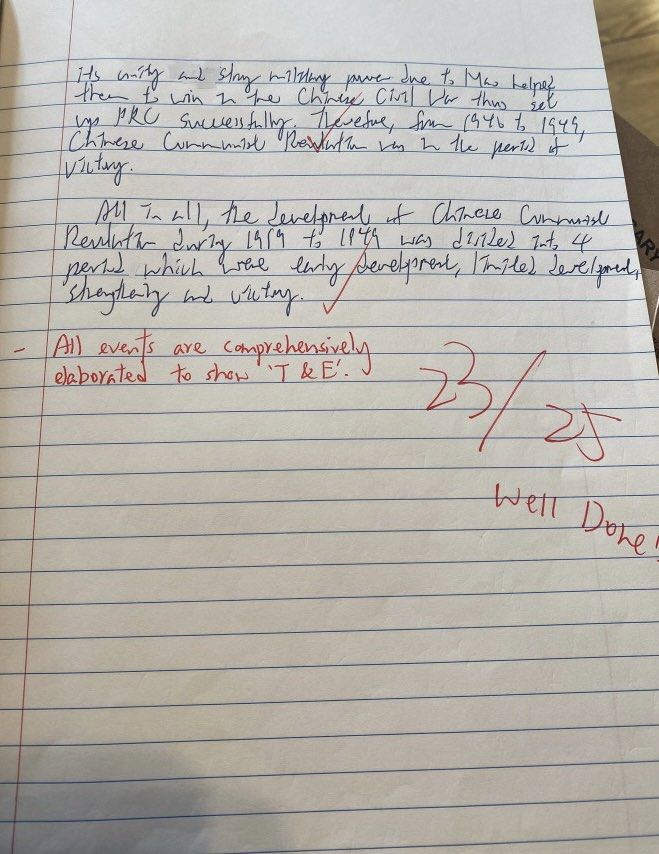 its unity and strong military power due to Mao helped
them to win in the Chinese Civil War thus set
up PRC successfully. Therefore, from 1946 to 1949,
Chinese Communist Revolution was in the period of
victory.
All in all, the development of Chinese Communist
Revolution during 1919 to 1949 was divided into 4
period which were early development, limited development,
strengthening and victory.
- All events are comprehensively
elaborated to show 'T & E'.
23/25
Well Done!
ARY